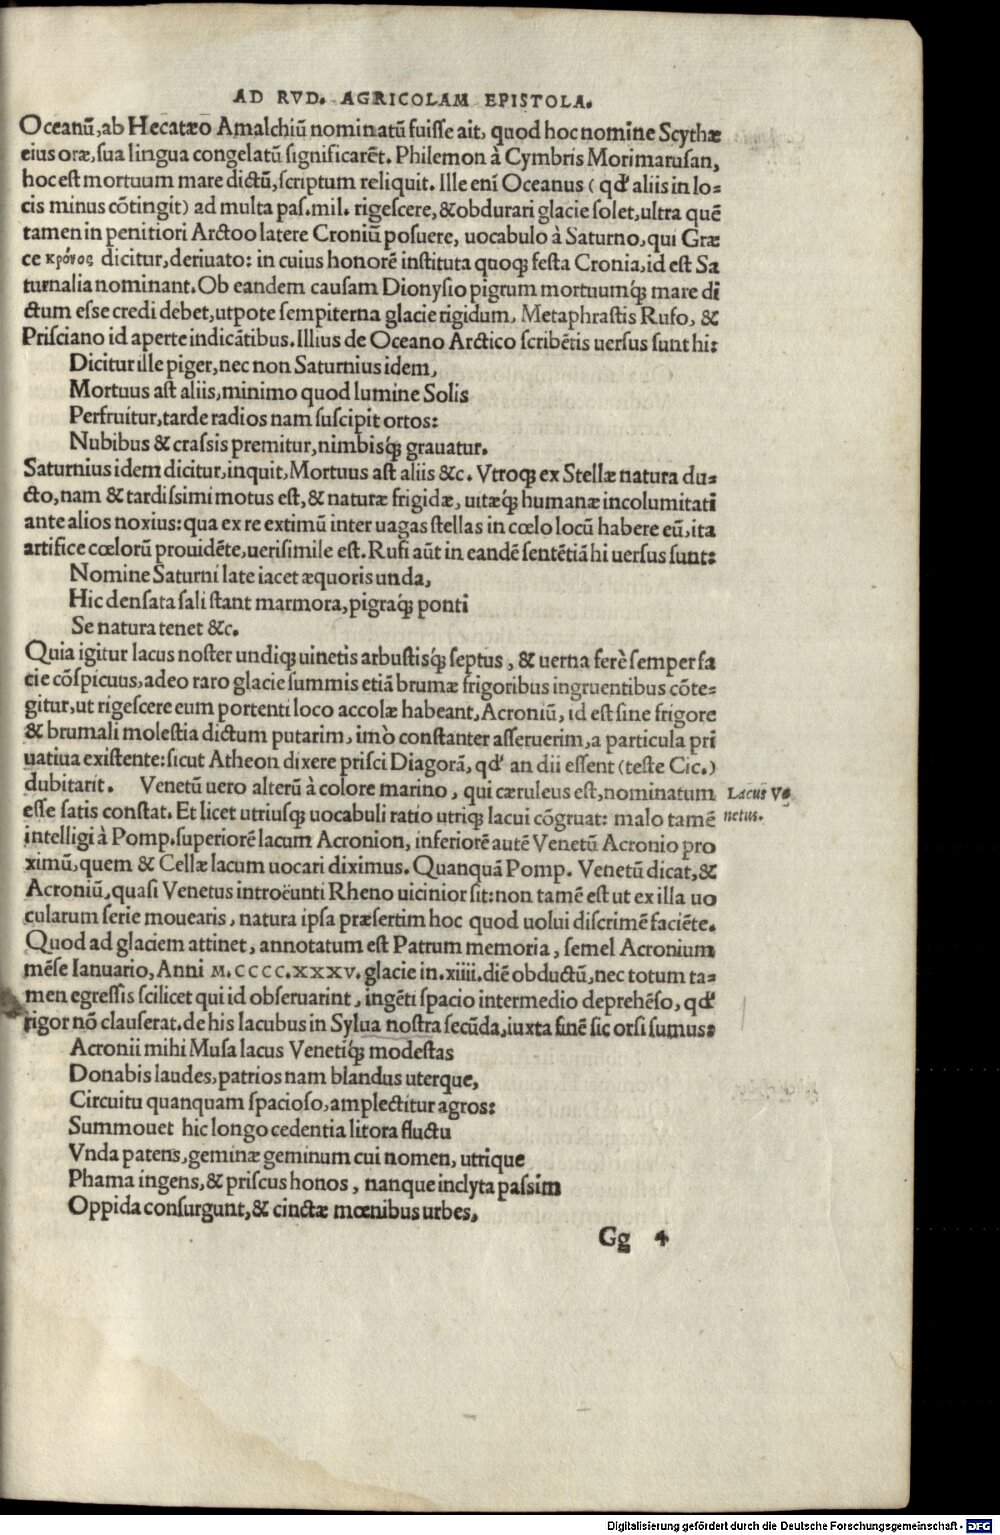 AD RVD. AGRICOLAM EPISTOLA.
Oceanũ, ab Hecatæo Amalchiũ nominatũ fuisse ait, quod hoc nomine Scythæ
eius oræ, sua lingua congelatũ significarẽt. Philemon à Cymbris Morimarusan,
hoc est mortuum mare dictũ, scriptum reliquit. Ille enĩ Oceanus (qđ aliis in lo=
cis minus cõtingit) ad multa pas. mil. rigescere, & obdurari glacie solet, ultra quẽ
tamen in penitiori Arctoo latere Croniũ posuere, uocabulo à Saturno, qui Græ
ce κρόνος dicitur, deriuato: in cuius honorẽ instituta quoqꝫ festa Cronia, id est Sa
turnalia nominant. Ob eandem causam Dionysio pigrum mortuumqꝫ́ mare di
ctum esse credi debet, utpote sempiterna glacie rigidum, Metaphrastis Rufo, &
Prisciano id aperte indicãtibus. Illius de Oceano Arctico scribẽtis uersus sunt hi:
Dicitur ille piger, nec non Saturnius idem,
Mortuus ast aliis, minimo quod lumine Solis
Perfruitur, tarde radios nam suscipit ortos:
Nubibus & crassis premitur, nimbisqꝫ́ grauatur.
Saturnius idem dicitur, inquit, Mortuus ast aliis &c. Vtroqꝫ ex Stellæ natura du=
cto, nam & tardissimi motus est, & naturæ frigidæ, uitæqꝫ́ humanæ incolumitati
ante alios noxius: qua ex re extimũ inter uagas stellas in cœlo locũ habere eũ, ita
artifice cœlorũ prouidẽte, uerisimile est. Rufi aũt in eandẽ sentẽtiã hi uersus sunt:
Nomine Saturni late iacet æquoris unda,
Hic densata sali stant marmora, pigraqꝫ́ ponti
Se natura tenet &c.
Quia igitur lacus noster undiqꝫ uinetis arbustisqꝫ́ septus, & uerna ferè semper fa
cie cõspicuus, adeo raro glacie summis etiã brumæ frigoribus ingruentibus cõte=
gitur, ut rigescere eum portenti loco accolæ habeant, Acroniũ, id est sine frigore
& brumali molestia dictum putarim, imò constanter asseruerim, a particula pri
uatiua existente: sicut Atheon dixere prisci Diagorã, qđ an dii essent (teste Cic.)
dubitarit. Venetũ uero alterũ à colore marino, qui cæruleus est, nominatum
Lacus Ve
netus.
esse satis constat. Et licet utriusqꝫ uocabuli ratio utriqꝫ lacui cõgruat: malo tamẽ
intelligi à Pomp. superiorẽ lacum Acronion, inferiorẽ autẽ Venetũ Acronio pro
ximũ, quem & Cellæ lacum uocari diximus. Quanquã Pomp. Venetũ dicat, &
Acroniũ, quasi Venetus introëunti Rheno uicinior sit: non tamẽ est ut ex illa uo
cularum serie mouearis, natura ipsa præsertim hoc quod uolui discrimẽ faciẽte.
Quod ad glaciem attinet, annotatum est Patrum memoria, semel Acronium
mẽse Ianuario, Anni M.CCCC.XXXV. glacie in .xiiii. diẽ obductũ, nec totum ta=
men egressis scilicet qui id obseruarint, ingẽti spacio intermedio deprehẽso, qđ
rigor nõ clauserat. de his lacubus in Sylua nostra secũda, iuxta finẽ sic orsi sumus:
Acronii mihi Musa lacus Venetiqꝫ́ modestas
Donabis laudes, patrios nam blandus uterque,
Circuitu quanquam spacioso, amplectitur agros:
Summouet hic longo cedentia litora fluctu
Vnda patens, geminæ geminum cui nomen, utrique
Phama ingens, & priscus honos, nanque inclyta passim
Oppida consurgunt, & cinctæ mœnibus urbes,
Gg 4
Digitalisierung gefördert durch die Deutsche Forschungsgemeinschaft - DFG